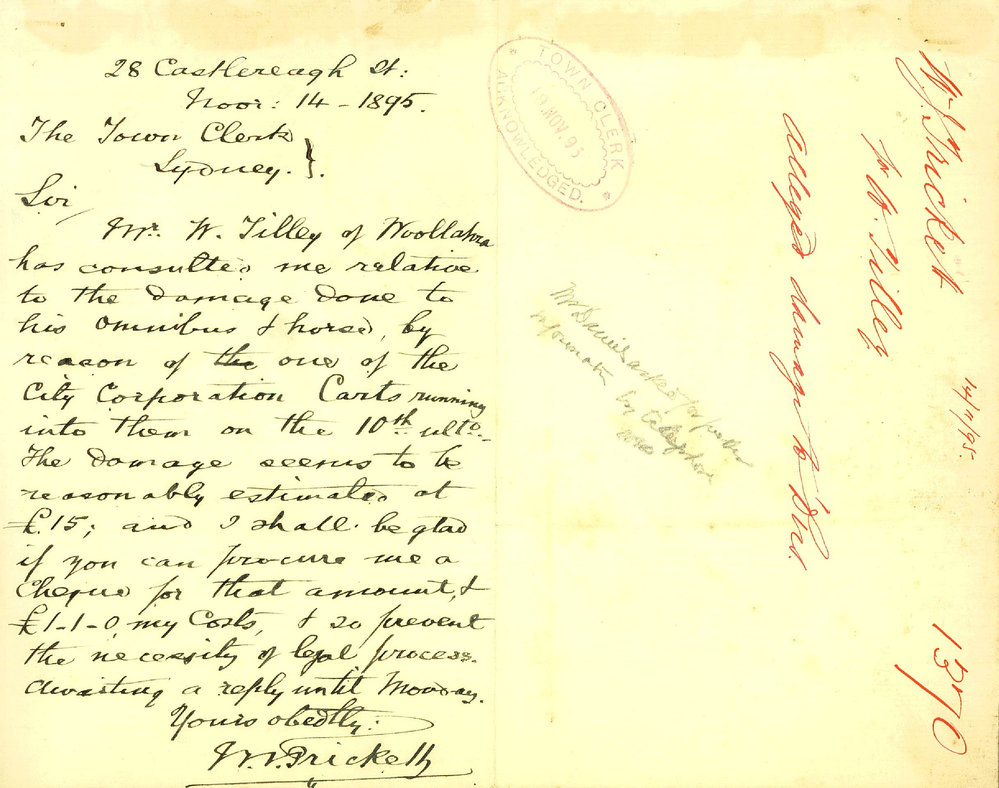 28 Castlereagh St:
Novr: 14 - 1895.
The Town Clerk
Sydney. }.
Sir,
Mr. W. Tilley of Woollahra
has consulted me relative
to the damage done to
his omnibus & horse, by
reason of the one of the
City Corporation Carts running
into them on the 10th ulto.
The damage seems to be
reasonably estimated at
£.15; and I shall be glad
if you can procure me a
Cheque for that amount, &
£1-1-0, my Costs, & so prevent
the necessity of legal process.
Awaiting a reply until Monday.
Yours obedtly:
W. Prickett
TOWN CLERK
19.NOV.95
ACKNOWLEDGED.
Mr Daniels asked for further
information by telephone
W. Tricket
for W. Tilley
alleged damage to 'Bus.
14/11/95.
1370